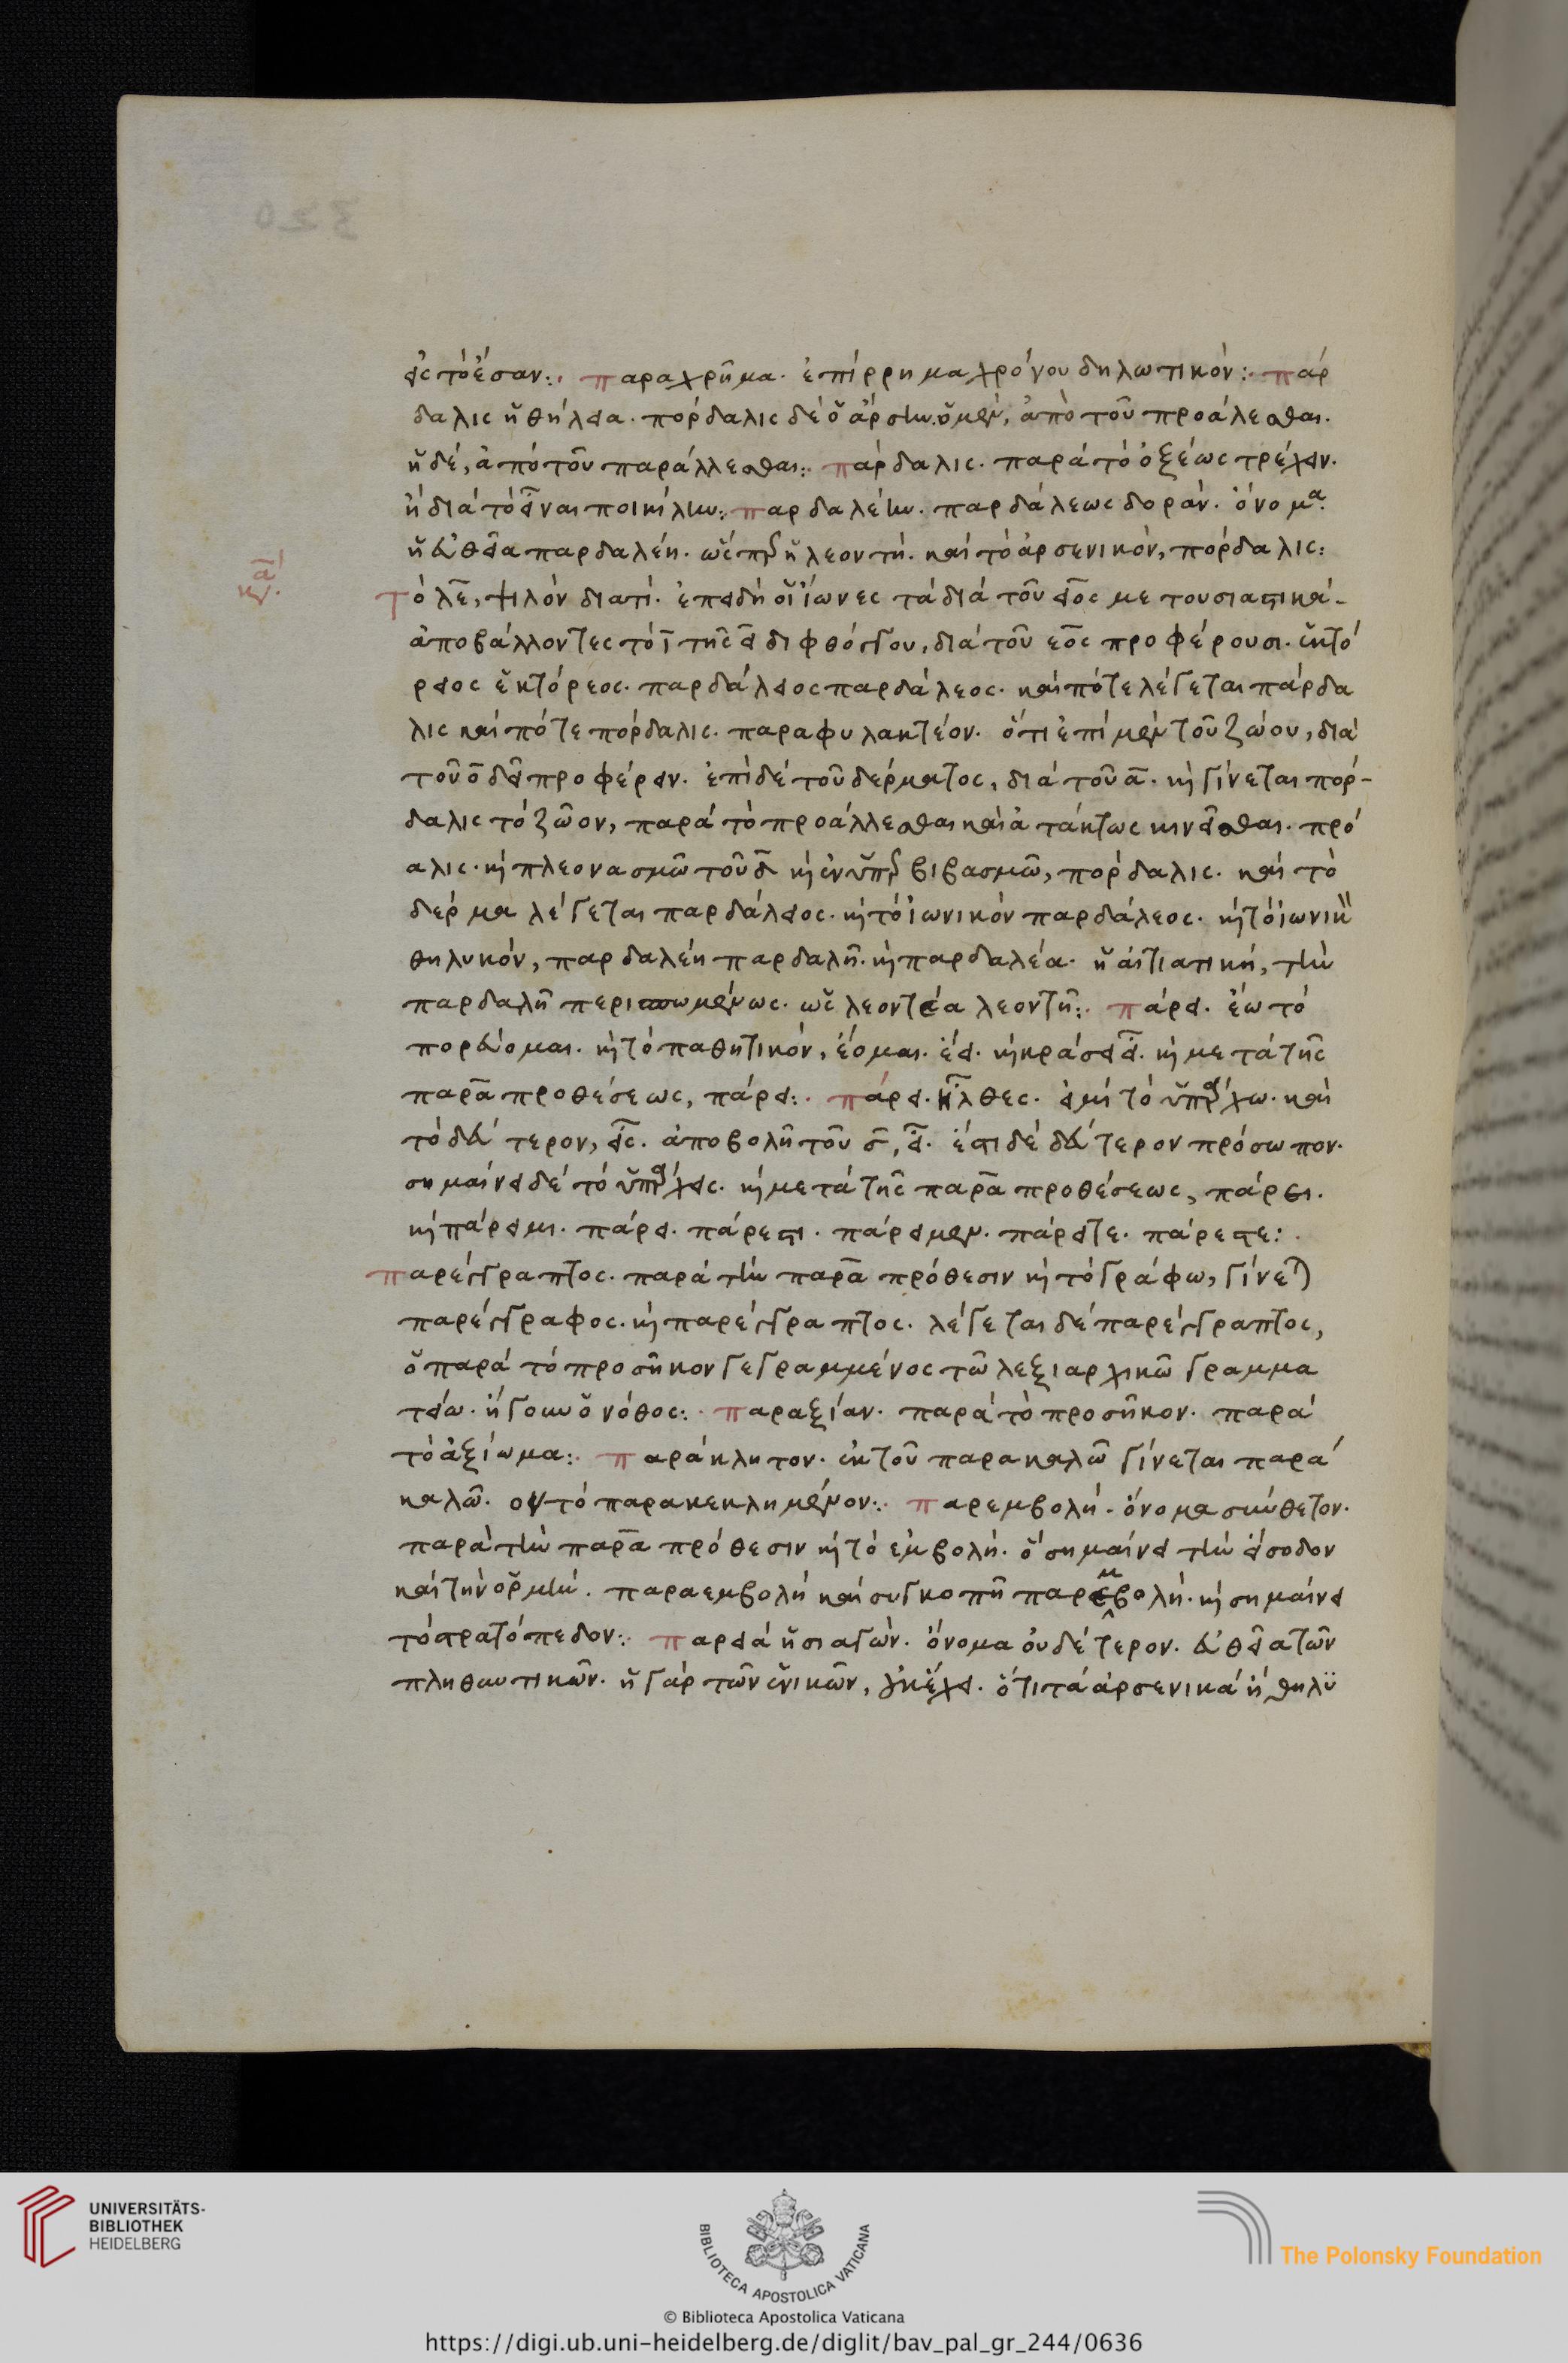 εις τὸ ἔσαν: παραχρῆμα· ἐπίρρημα χρόνου δηλωτικόν: πάρ
δαλις ἡ θήλεια· πόρδαλις δὲ ὁ ἄρσην. ὁ μὲν, ἀπὸ τοῦ προάλεσθαι·
ἡ δὲ, ἀπὸ τοῦ παράλλεσθαι: πάρδαλις· παρὰ τὸ ὀξέως τρέχειν·
ἢ διὰ τὸ εἶναι ποικίλην: παρδαλέην· παρδάλεως δοράν· ὄνομα·
ἡ εὐθεῖα παρδαλέη· ὥσπερ ἡ λεοντή· καὶ τὸ ἀρσενικὸν, πόρδαλις:
κζα
Τὸ λε, ψιλὸν διατί· ἐπειδὴ οἱ ἴωνες τὰ διὰ τοῦ ειος μετουσιαστικὰ-
ἀποβάλλοντες τὸ ι τῆς ει διφθόγγου, διὰ τοῦ εος προφέρουσι· ἑκτό
ρειος ἑκτόρεος· παρδάλειος παρδάλεος· καὶ πότε λέγεται πάρδα
λις καὶ πότε πόρδαλις· παραφυλακτέον· ὅτι ἐπὶ μὲν τοῦ ζώου, διὰ
τοῦ ο δεῖ προφέρειν· ἐπὶ δὲ τοῦ δέρματος, διὰ τοῦ α· καὶ γίνεται πόρ-
δαλις τὸ ζῶον, παρὰ τὸ προάλλεσθαι καὶ ἀτάκτως κινεῖσθαι· πρό
αλις· καὶ πλεονασμῶ τοῦ δ καὶ ἐν ὑπερβιβασμῶ, πόρδαλις· καὶ τὸ
δέρμα λέγεται παρδάλειος· καὶ τὸ ἰωνικὸν παρδάλεος· καὶ τὸ ἰωνικὸν
θηλυκόν, παρδαλέη παρδαλῆ· καὶ παρδαλέα· ἡ αἰτιατικὴ, τὴν
παρδαλῆ περισπωμένως· ὡς λεοντέα λεοντῆ: πάρει· ἔω τὸ
πορεύομαι· καὶ τὸ παθητικὸν, ἕομαι· ἕει· καὶ κράσει εἶ· καὶ μετὰ τῆς
παρα προθέσεως, πάρει: πάρει· ἦλθες· εἰμὶ τὸ ὑπάρχω· καὶ
τὸ δεύτερον, εἶς· ἀποβολῆ τοῦ σ, εἶ· ἔστι δὲ δεύτερον πρόσωπον·
σημαίνει δὲ τὸ ὑπάρχεις· καὶ μετὰ τῆς παρα προθέσεως, πάρει·
καὶ πάρειμι· πάρει· πάρεστι· πάρειμεν· πάρειτε· πάρεστε:
παρέγγραπτος· παρὰ τὴν παρα πρόθεσιν καὶ τὸ γράφω, γίνεται
παρέγγραφος· καὶ παρέγγραπτος· λέγεται δὲ παρέγγραπτος,
ὁ παρὰ τὸ προσῆκον γεγραμμένος τῶ λεξιαρχικῶ γραμμα
τείω· ἤγουν ὁ νόθος: παραξίαν· παρὰ τὸ προσῆκον· παρὰ
τὸ ἀξίωμα: παράκλητον· ἐκ τοῦ παρακαλῶ γίνεται παρὰ
καλῶ· τὸ παρακεκλημένον: παρεμβολή· ὄνομα σύνθετον·
παρὰ τὴν παρα πρόθεσιν καὶ τὸ ἐμβολή· ὃ σημαίνει τὴν εἴσοδον
καὶ τὴν ὁρμήν· παραεμβολὴ καὶ συγκοπῆ παρεμβολή· καὶ σημαίνει
τὸ στρατόπεδον: παρειὰ ἡ σιαγών· ὄνομα οὐδέτερον· εὐθεῖα τῶν
πληθυντικῶν· ἡ γὰρ τῶν ἑνικῶν, οὐκ ἔχει· ὅτι τὰ ἀρσενικὰ ἢ θηλυ
UNIVERSITÄTS-
BIBLIOTHEK
HEIDELBERG
BIBLIOTECA APOSTOLICA VATICANA
The Polonsky Foundation
© Biblioteca Apostolica Vaticana
https://digi.ub.uni-heidelberg.de/diglit/bav_pal_gr_244/0636